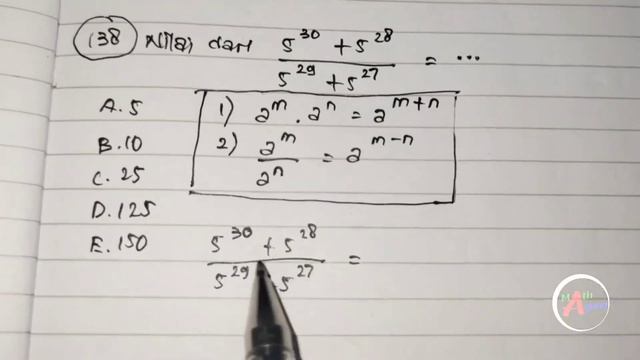 138 Nilai dari 5^30 + 5^28 / 5^29 + 5^27 = ...
A. 5
B. 10
C. 25
D. 125
E. 150
1) a^m . a^n = a^(m+n)
2) a^m / a^n = a^(m-n)
5^30 + 5^28 / 5^29 5^27 =
Math